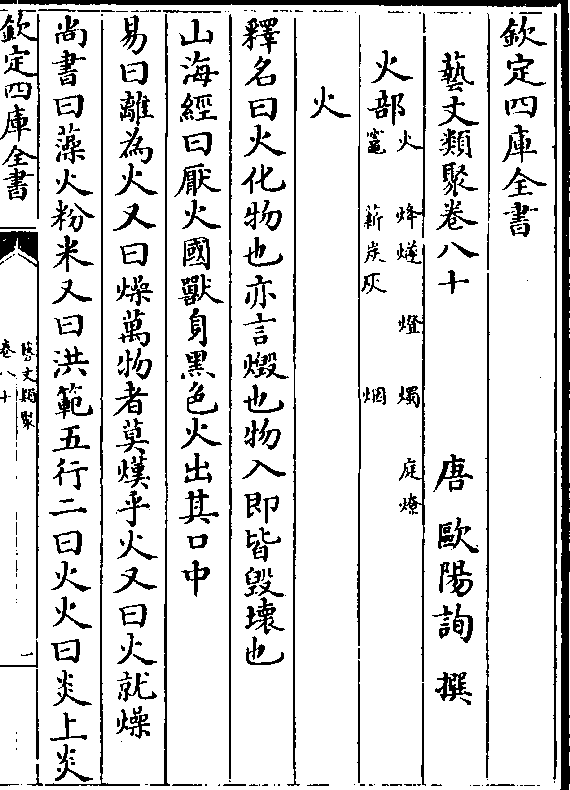 欽定四庫全書
藝文類聚卷八十
唐 歐陽詢 撰
火部 火 烽燧 燈 燭 庭燎
竈 薪炭灰 烟
火
釋名曰火化物也亦言燬也物入即皆毀壞也
山海經曰厭火國獸身黑色火出其口中
易曰離為火又曰燥萬物者莫熯乎火又曰火就燥
尚書曰藻火粉米又曰洪範五行二曰火火曰炎上炎
欽定四庫全書
藝文類聚
卷八十
一